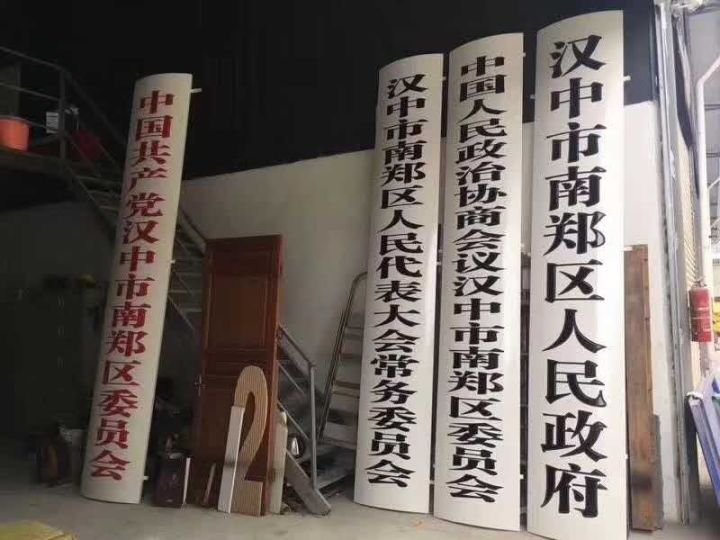 中国共产党汉中市南郑区委员会
汉中市南郑区人民代表大会常务委员会
中国人民政治协商会议汉中市南郑区委员会
汉中市南郑区人民政府
2